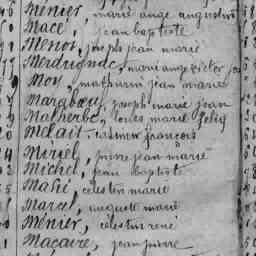 Ménier, marie ange augustin
Macé, jean baptiste
Menor, joseph jean marie
Merdrignac, marie ange victor
Moy, mathurin jean marie
Marabœuf, joseph marie jean
Malherbe, louis marie felix
Mélait, casimir françois
Miriel, pierre jean marie
Michel, jean baptiste
Mahé, celestin marie
Marcel, auguste marie
Ménier, celestin rené
Macaire, jean pierre